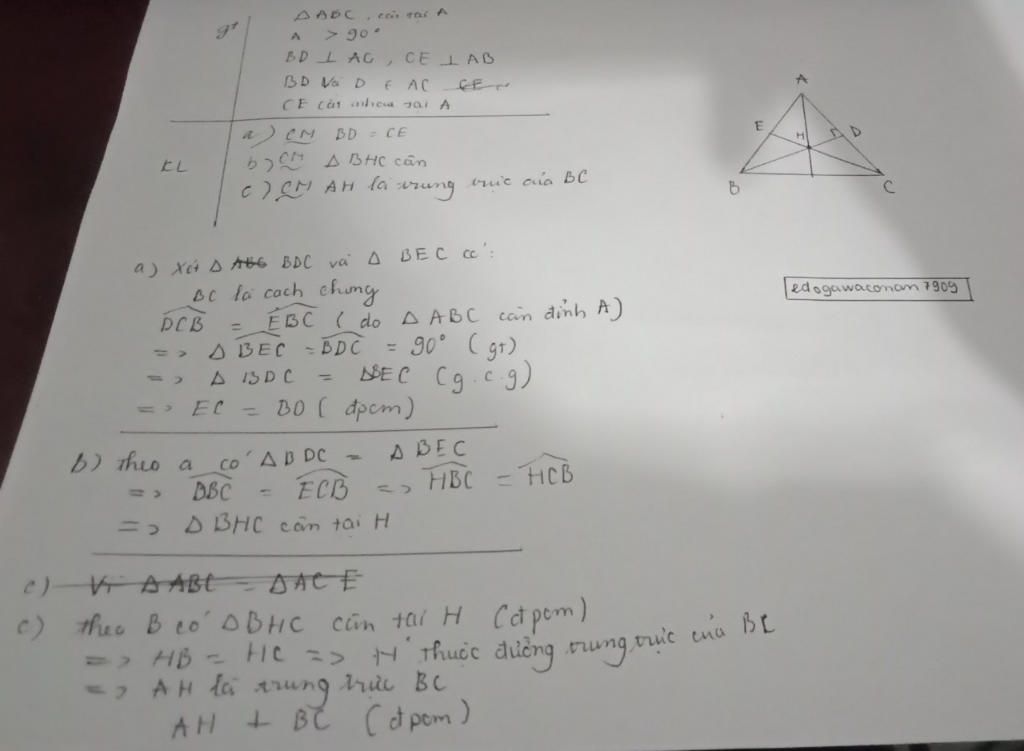 gt
Δ ABC, cân tại A
A > 90°
BD ⊥ AC, CE ⊥ AB
BD và D ∈ AC
CE cắt nhau tại A
KL
a) CM BD = CE
b) CM Δ BHC cân
c) CM AH là trung trực của BC
A
E
H
D
B
C
edogawaconan7909
a) Xét Δ ABC BDC và Δ BEC có:
BC là cạch chung
DCB = EBC ( do Δ ABC cân đỉnh A)
=> Δ BEC = BDC = 90° (gt)
=> Δ BDC = ΔBEC (g.c.g)
=> EC = BD ( đpcm)
b) Theo a có Δ BDC = Δ BEC
=> DBC = ECB => HBC = HCB
=> Δ BHC cân tại H
c) Vì Δ ABC = Δ AC E
c) Theo B có Δ BHC cân tại H (đpcm)
=> HB = HC => H thuộc đường trung trực của BC
=> AH là trung trực BC
AH ⊥ BC (đpcm)